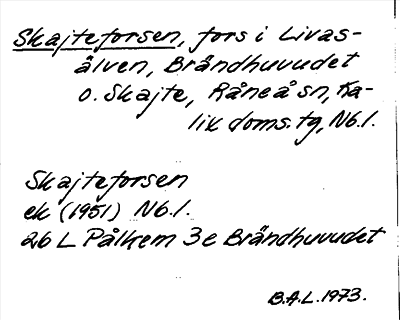 Skajteforsen, fors i Livas-
älven, Brändhuvudet
o. Skajte, Råneå sn, Ka-
lix doms. tg, Nb. l.
Skajteforsen
ek (1951) Nb. l.
26 L Pålkem 3e Brändhuvudet
B.A.L. 1973.